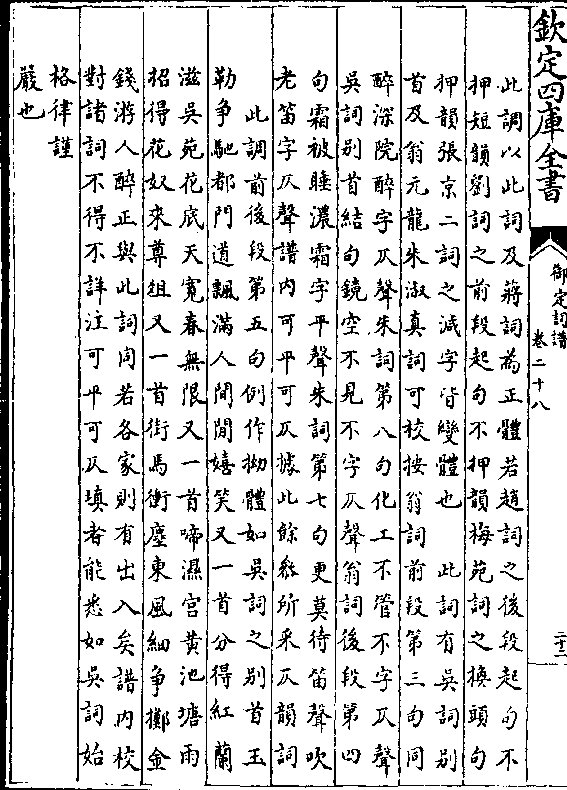 欽定四庫全書
御定詞譜
卷二十八
二十二
此調以此詞及蔣詞為正體若趙詞之後段起句不
押短韻劉詞之前段起句不押韻梅苑詞之換頭句
押韻張京二詞之減字皆變體也　此詞有吳詞別
首及翁元龍朱淑真詞可校按翁詞前段第三句同
醉深院醉字仄聲朱詞第八句化工不管不字仄聲
吳詞別首結句鏡空不見不字仄聲翁詞後段第四
句霜被睡濃霜字平聲朱詞第七句更莫待笛聲吹
老笛字仄聲譜内可平可仄據此餘叅所采仄韻詞
此調前後段第五句例作拗體如吳詞之别首玉
勒争馳都門道飄滿人間閒嬉笑又一首分得紅蘭
滋吳苑花底天寬春無限又一首啼濕宫黄池塘雨
招得花奴來尊俎又一首街馬衝塵東風細争擲金
錢游人醉正與此詞同若各家則有出入矣譜内校
對諸詞不得不詳注可平可仄填者能悉如吳詞始
格律謹
嚴也